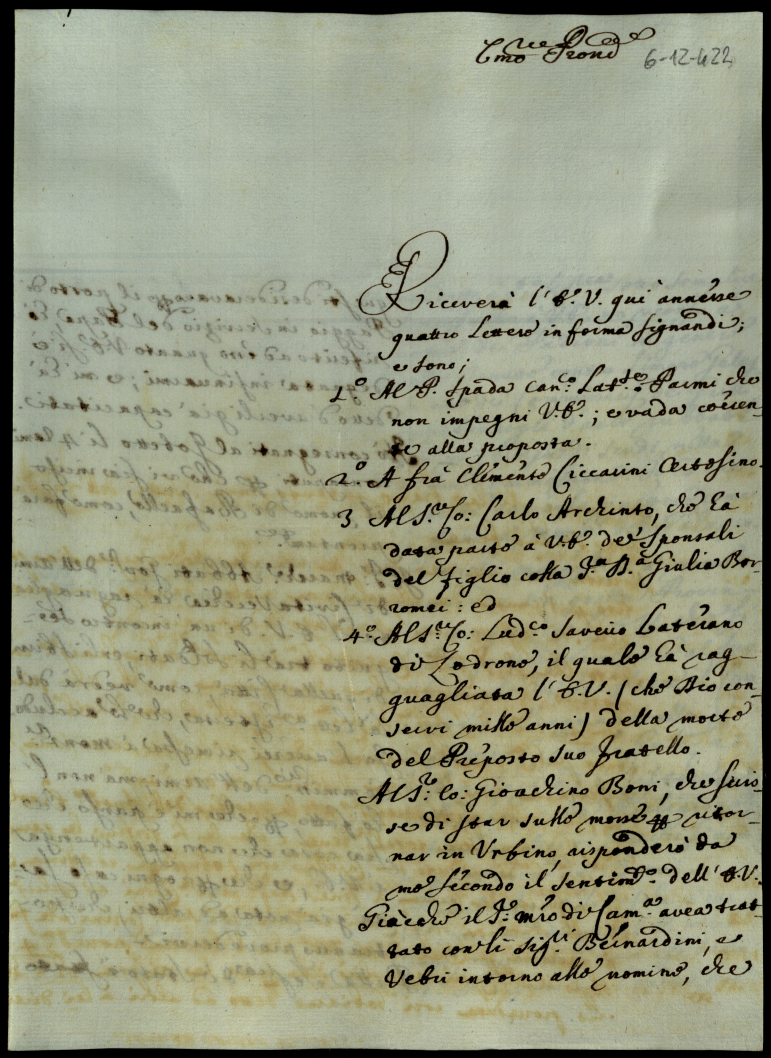 Emo e Rmo Pronè
6-12-422
Riceverà l'E. V. qui annesse
quattro Lettere in forma signandi;
e sono;
1.º Al P. Spada Can.co Lat.se Parmi che
non impegni V. E.; e vada coeren-
te alla proposta.
2.º A frà Clemente Ciccarini Certosino.
3 Al S.r Co: Carlo Archinto, che hà
data parte à V. E. de' Sponsali
del figlio colla S.ra D.a Giulia Bor-
romei: ed
4.º Al S.r Co: Lud.co Saverio Laterano
di Lodrone, il quale hà rag-
guagliata l'E. V. (che Dio con-
servi mille anni) della morte
del Preposto suo fratello.
Al S.r Co: Gioachino Boni, che scris-
se di star sulle mosse p ritor-
nar in Urbino, risponderò da
me secondo il sentim.to dell'E. V.
Giàcche il S.r Mro di Cam.a avea trat-
tato con li Sig.ri Bernardini, e
Vebii intorno alle nomine, che